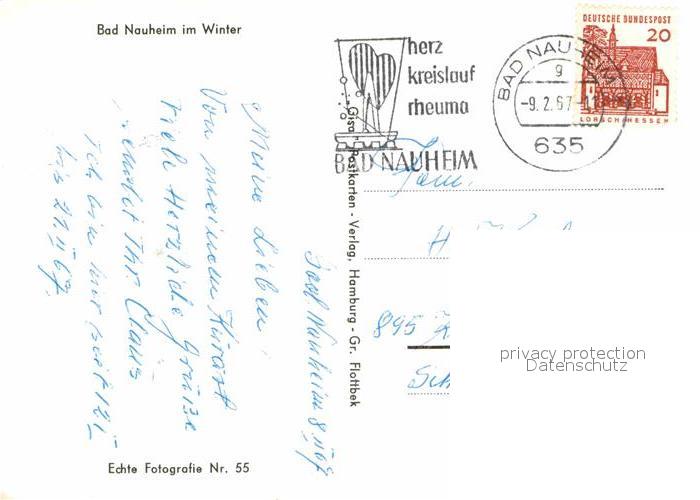 Bad Nauheim im Winter
herz
kreislauf
rheuma
BAD NAUHEIM
BAD NAUHEIM
g
-9.2.67
635
DEUTSCHE BUNDESPOST
20
LORSCH/HESSEN
Bad Nauheim 8.II 67
Meine Lieben,
Von meinem Kurort
viele Herzliche Grüsse
sendet Ihr Claus
Ich bin hier seit
bis 21.II 67.
Gisa - Postkarten - Verlag, Hamburg - Gr. Flottbek
Fam.
H
895
Sch
privacy protection
Datenschutz
Echte Fotografie Nr. 55